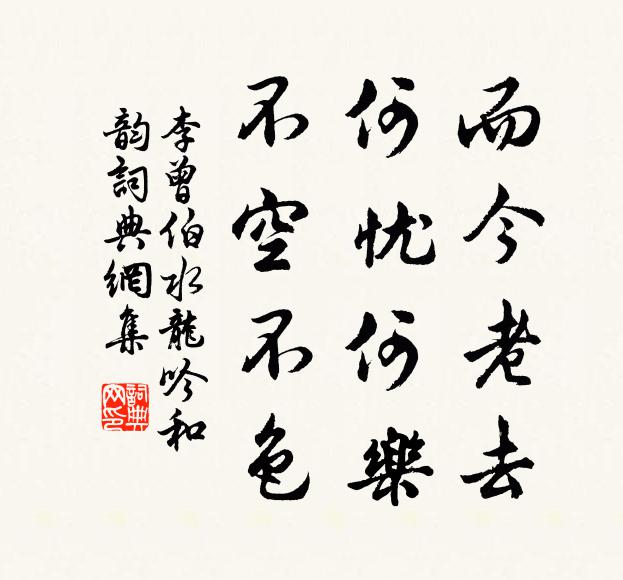 而今老去
何忧何樂
不空不色
李曾伯水龍吟和
韵詞典網集
詞典
网印